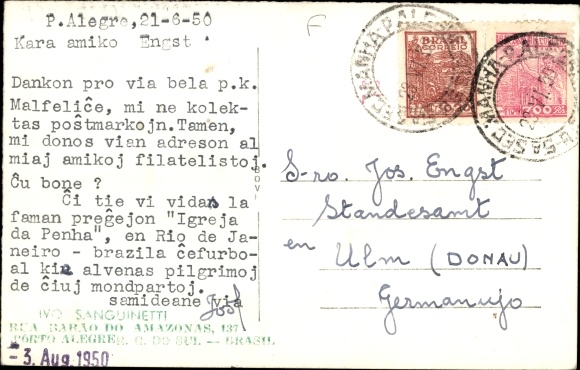 P.Alegre,21-6-50
Kara amiko Engst
Dankon pro via bela p.k.
Malfeliĉe, mi ne kolek-
tas poŝtmarkojn.Tamen,
mi donos vian adreson al
miaj amikoj filatelistoj.
Ĉu bone ?
Ĉi tie vi vidas la
faman preĝejon "Igreja
da Penha", en Rio de Ja-
neiro - brazila ĉefurbo-
al kiu alvenas pilgrimoj
de ĉiuj mondpartoj.
samideane via
IVO SANGUINETTI
RUA BARÃO DO AMAZONAS, 137
PORTO ALEGRE R. G. DO SUL - BRASIL
- 3. Aug. 1950
F
BRASIL
CORREIO
700
S-ro. Jos. Engst
Standesamt
en
Ulm (DONAU)
Germanujo